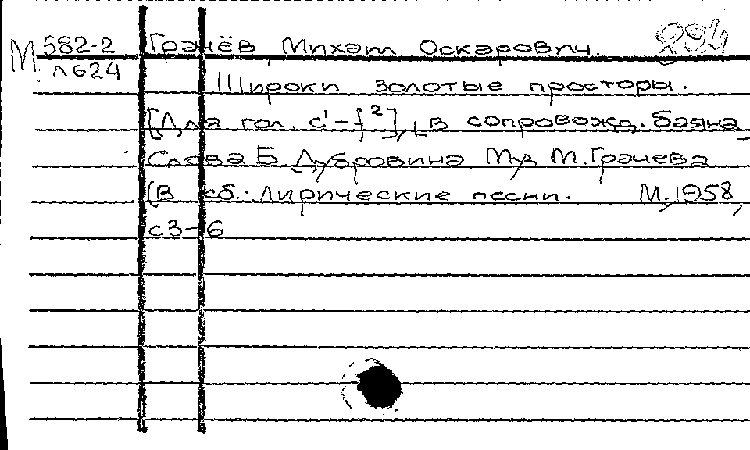 М 582-2 Грачёв, Михаил Оскарович. 294
Л624 Широки золотые просторы.
[Для гол. c¹-f²], в сопровожд. баяна
Слова Б. Дубровина Муз М. Грачева
[В сб: Лирические песни. М, 1958,
с3-6